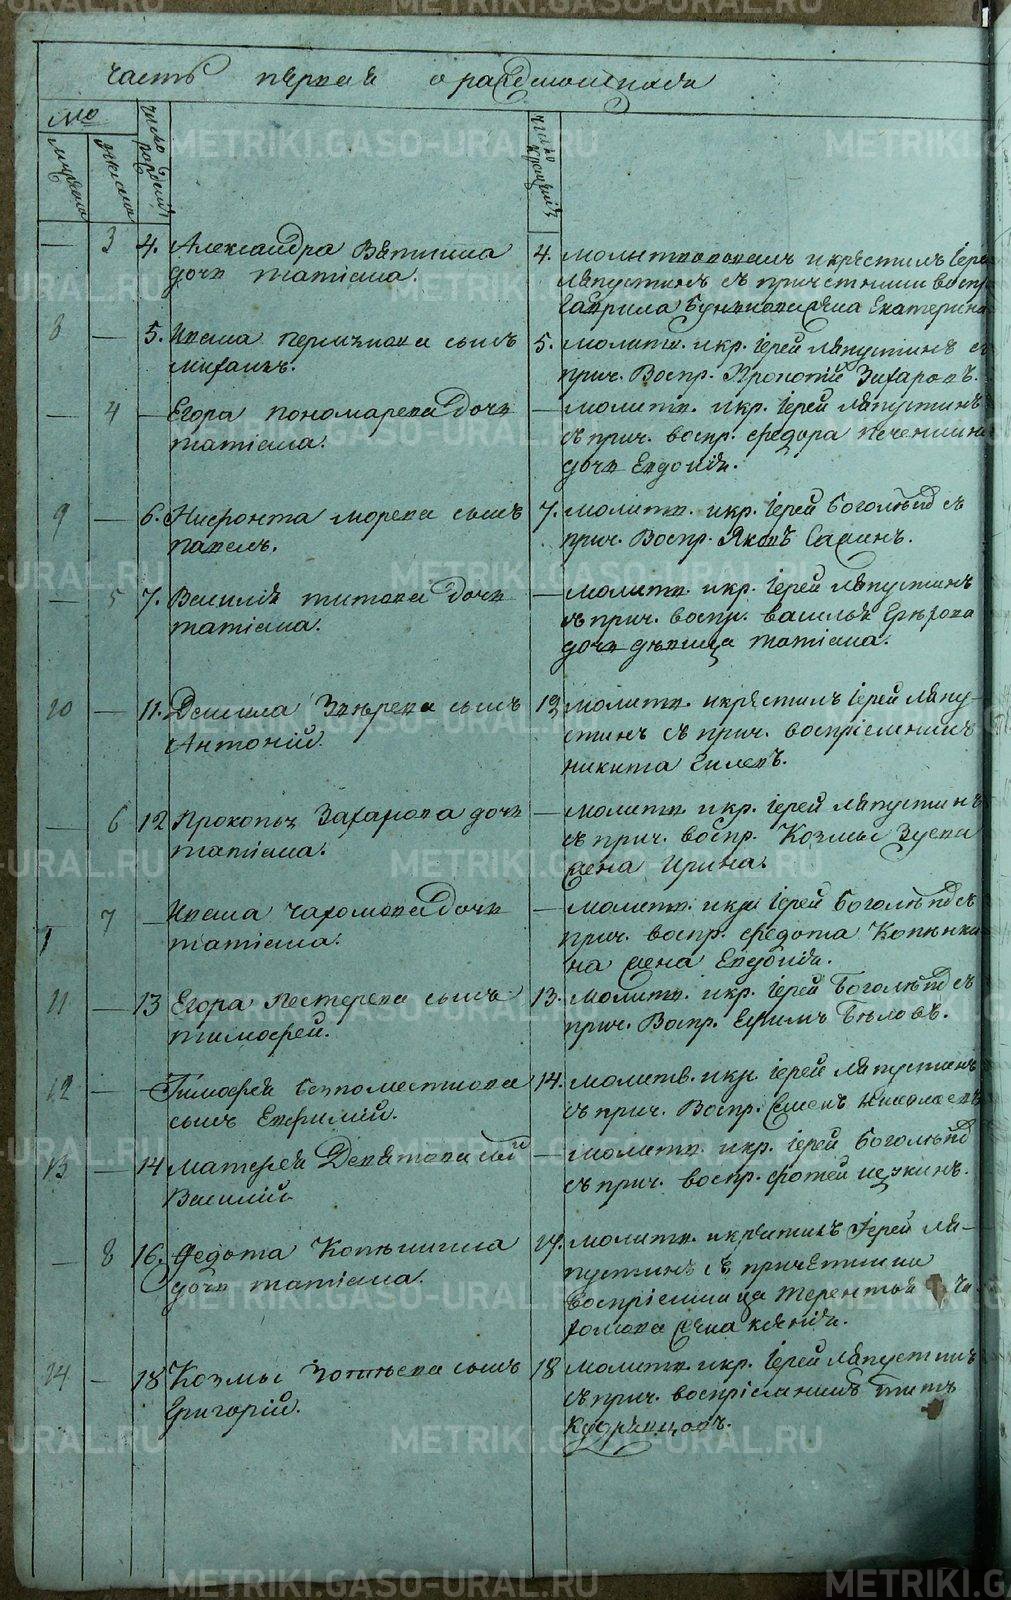 часть первая о раждающихся
№
мужеска
женска
число рождения
число крещения
— 3 4. Александра Вятчина
дочь татiана.
4. молитвовалъ и крестилъ Iерей
Ляпустинъ съ причетники воспр.
Гаврила жена Екатерина
8 — 5. Ивана сынъ
михаилъ.
5. молитв. и кр. Iерей Ляпустинъ съ
прич. Воспр. Прокопiй Захаровъ.
— 4 — Егора пономарева дочь
татiана.
— молитв. и кр. Iерей Ляпустинъ
съ прич. воспр. федора Печенкина
дочь Евдокiя.
9 — 6. Нифонта морева сынъ
павелъ.
7. молитв. и кр. Iерей Боголѣповъ съ
прич. Воспр. Яковъ Савинъ.
— 5 7. Василiя титова дочь
татiана.
— молитв. и кр. Iерей Ляпустинъ
съ прич. воспр. василья
дочь дѣвица татiана.
10 — 11. Данила Звѣрева сынъ
Антонiй.
12 молитв. и крестилъ Iерей Ляпу-
стинъ съ прич. воспрiемникъ
никита Гилевъ.
— 6 12 Прокопья Захарова дочь
татiана.
— молитв. и кр. Iерей Ляпустинъ
съ прич. воспр. Козмы Зуева
жена Ирина.
7 — Ивана дочь
татiана.
— молитв. и кр. Iерей Боголѣповъ съ
прич. воспр. федота Копыти-
на жена Евдокiя.
11 — 13 Егора Пестерева сынъ
тимофей.
13. Молитв. и кр. Iерей Боголѣповъ съ
прич. Воспр. Ефимъ Бѣловъ.
12 — — Тимофея Безпоместнова
сынъ Евфимiй.
14. молитв. и кр. Iерей Ляпустинъ
съ прич. Воспр. Семенъ Николаевъ
13 — 14 матфея Девятова
Василiй.
— молитв. и кр. Iерей Боголѣповъ
съ прич. воспр. фотей
— 8 16. Федота Копытина
дочь татiана.
17. молитв. и крестилъ Iерей Ля-
пустинъ съ причетники
воспрiемница терентья
жена ксенiя.
14 — 18 Козмы сынъ
Григорiй.
18 молитв. и кр. Iерей Ляпустинъ
съ прич. воспрiемникъ титъ
Кудрявцовъ.
METRIKI.GASO-URAL.RU